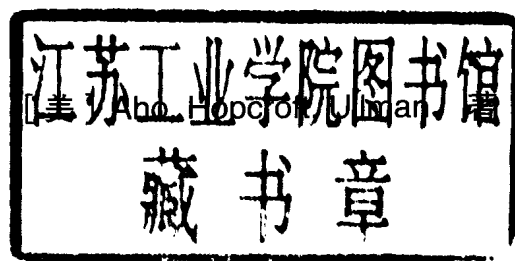 江苏工业学院图书馆
[美] Aho Hopcroft Ullman 著
藏书章